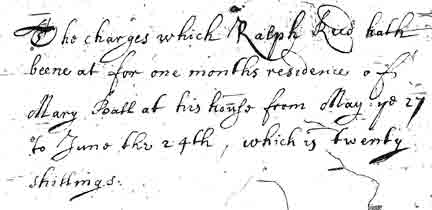 The charges which Ralph Reed hath
beene at for one months residence of
Mary Ball at his house from May ye 27
to June the 24th, which is twenty
shillings.